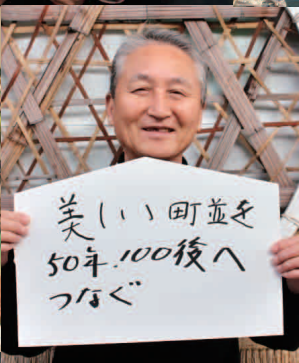 美しい町並を
50年.100後へ
つなぐ